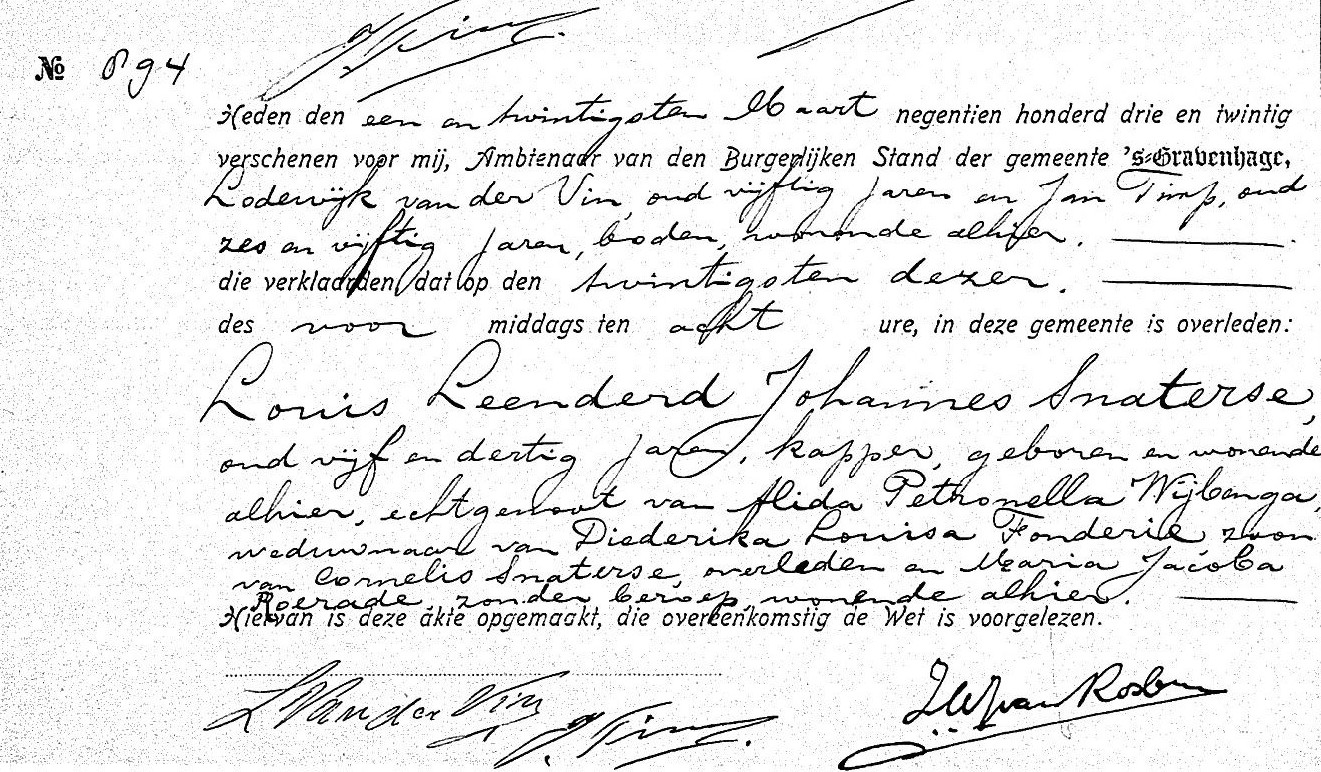 No 894
Heden den een en twintigsten Maart negentien honderd drie en twintig
verschenen voor mij, Ambtenaar van den Burgerlijken Stand der gemeente 's-Gravenhage,
Lodewijk van der Vin, oud vijftig jaren en Jan Timp, oud
zes en vijftig jaren, boden, wonende alhier.
die verklaarden dat op den twintigsten dezer.
des voor middags ten acht ure, in deze gemeente is overleden:
Louis Leenderd Johannes Snaterse,
oud vijf en dertig jaren, kapper, geboren en wonende
alhier, echtgenoot van Alida Petronella Wijbenga,
weduwnaar van Diederika Louisa Fonderie zoon
van Cornelis Snaterse, overleden en Maria Jacoba
Roerade, zonder beroep, wonende alhier.
Hiervan is deze akte opgemaakt, die overeenkomstig de Wet is voorgelezen.
L Van der Vin